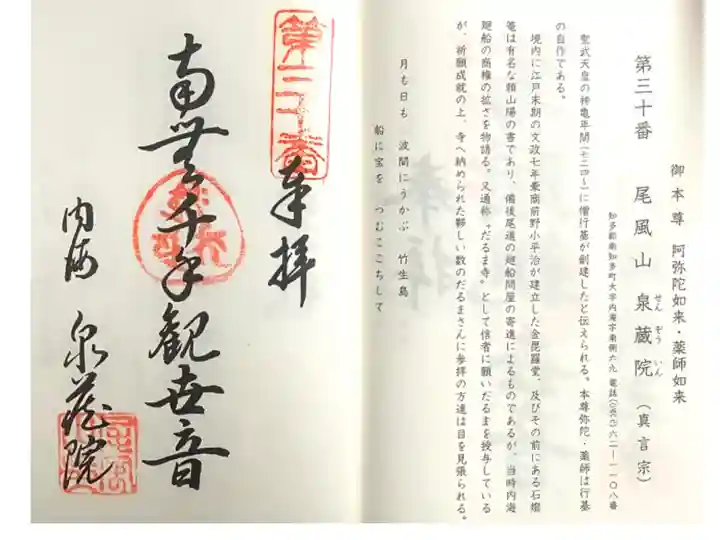 御本尊 阿弥陀如来・薬師如来
第三十番 尾風山 泉蔵院（真言宗）
せん ぞう いん
知多郡南知多町大字内海字南側六九 電話(〇五六九)六二―一一〇八番
聖武天皇の神亀年間(七二四〜)に僧行基が創建したと伝えられる。本尊弥陀・薬師は行基
の自作である。
境内に江戸末期の文政七年豪商前野小平治が建立した金毘羅堂、及びその前にある石燈
篭は有名な頼山陽の書であり、備後尾道の廻船問屋の寄進によるものであるが、当時内海
廻船の商権の拡さを物語る。又通称〝だるま寺〟として信者に願いだるまを授与している
が、祈願成就の上、寺へ納められた夥しい数のだるまさんに参拝の方達は目を見張られる。
月も日も 波間にうかぶ 竹生島
船に宝を つむここちして
第三十番
奉拝
南無千手観世音
内海 泉蔵院